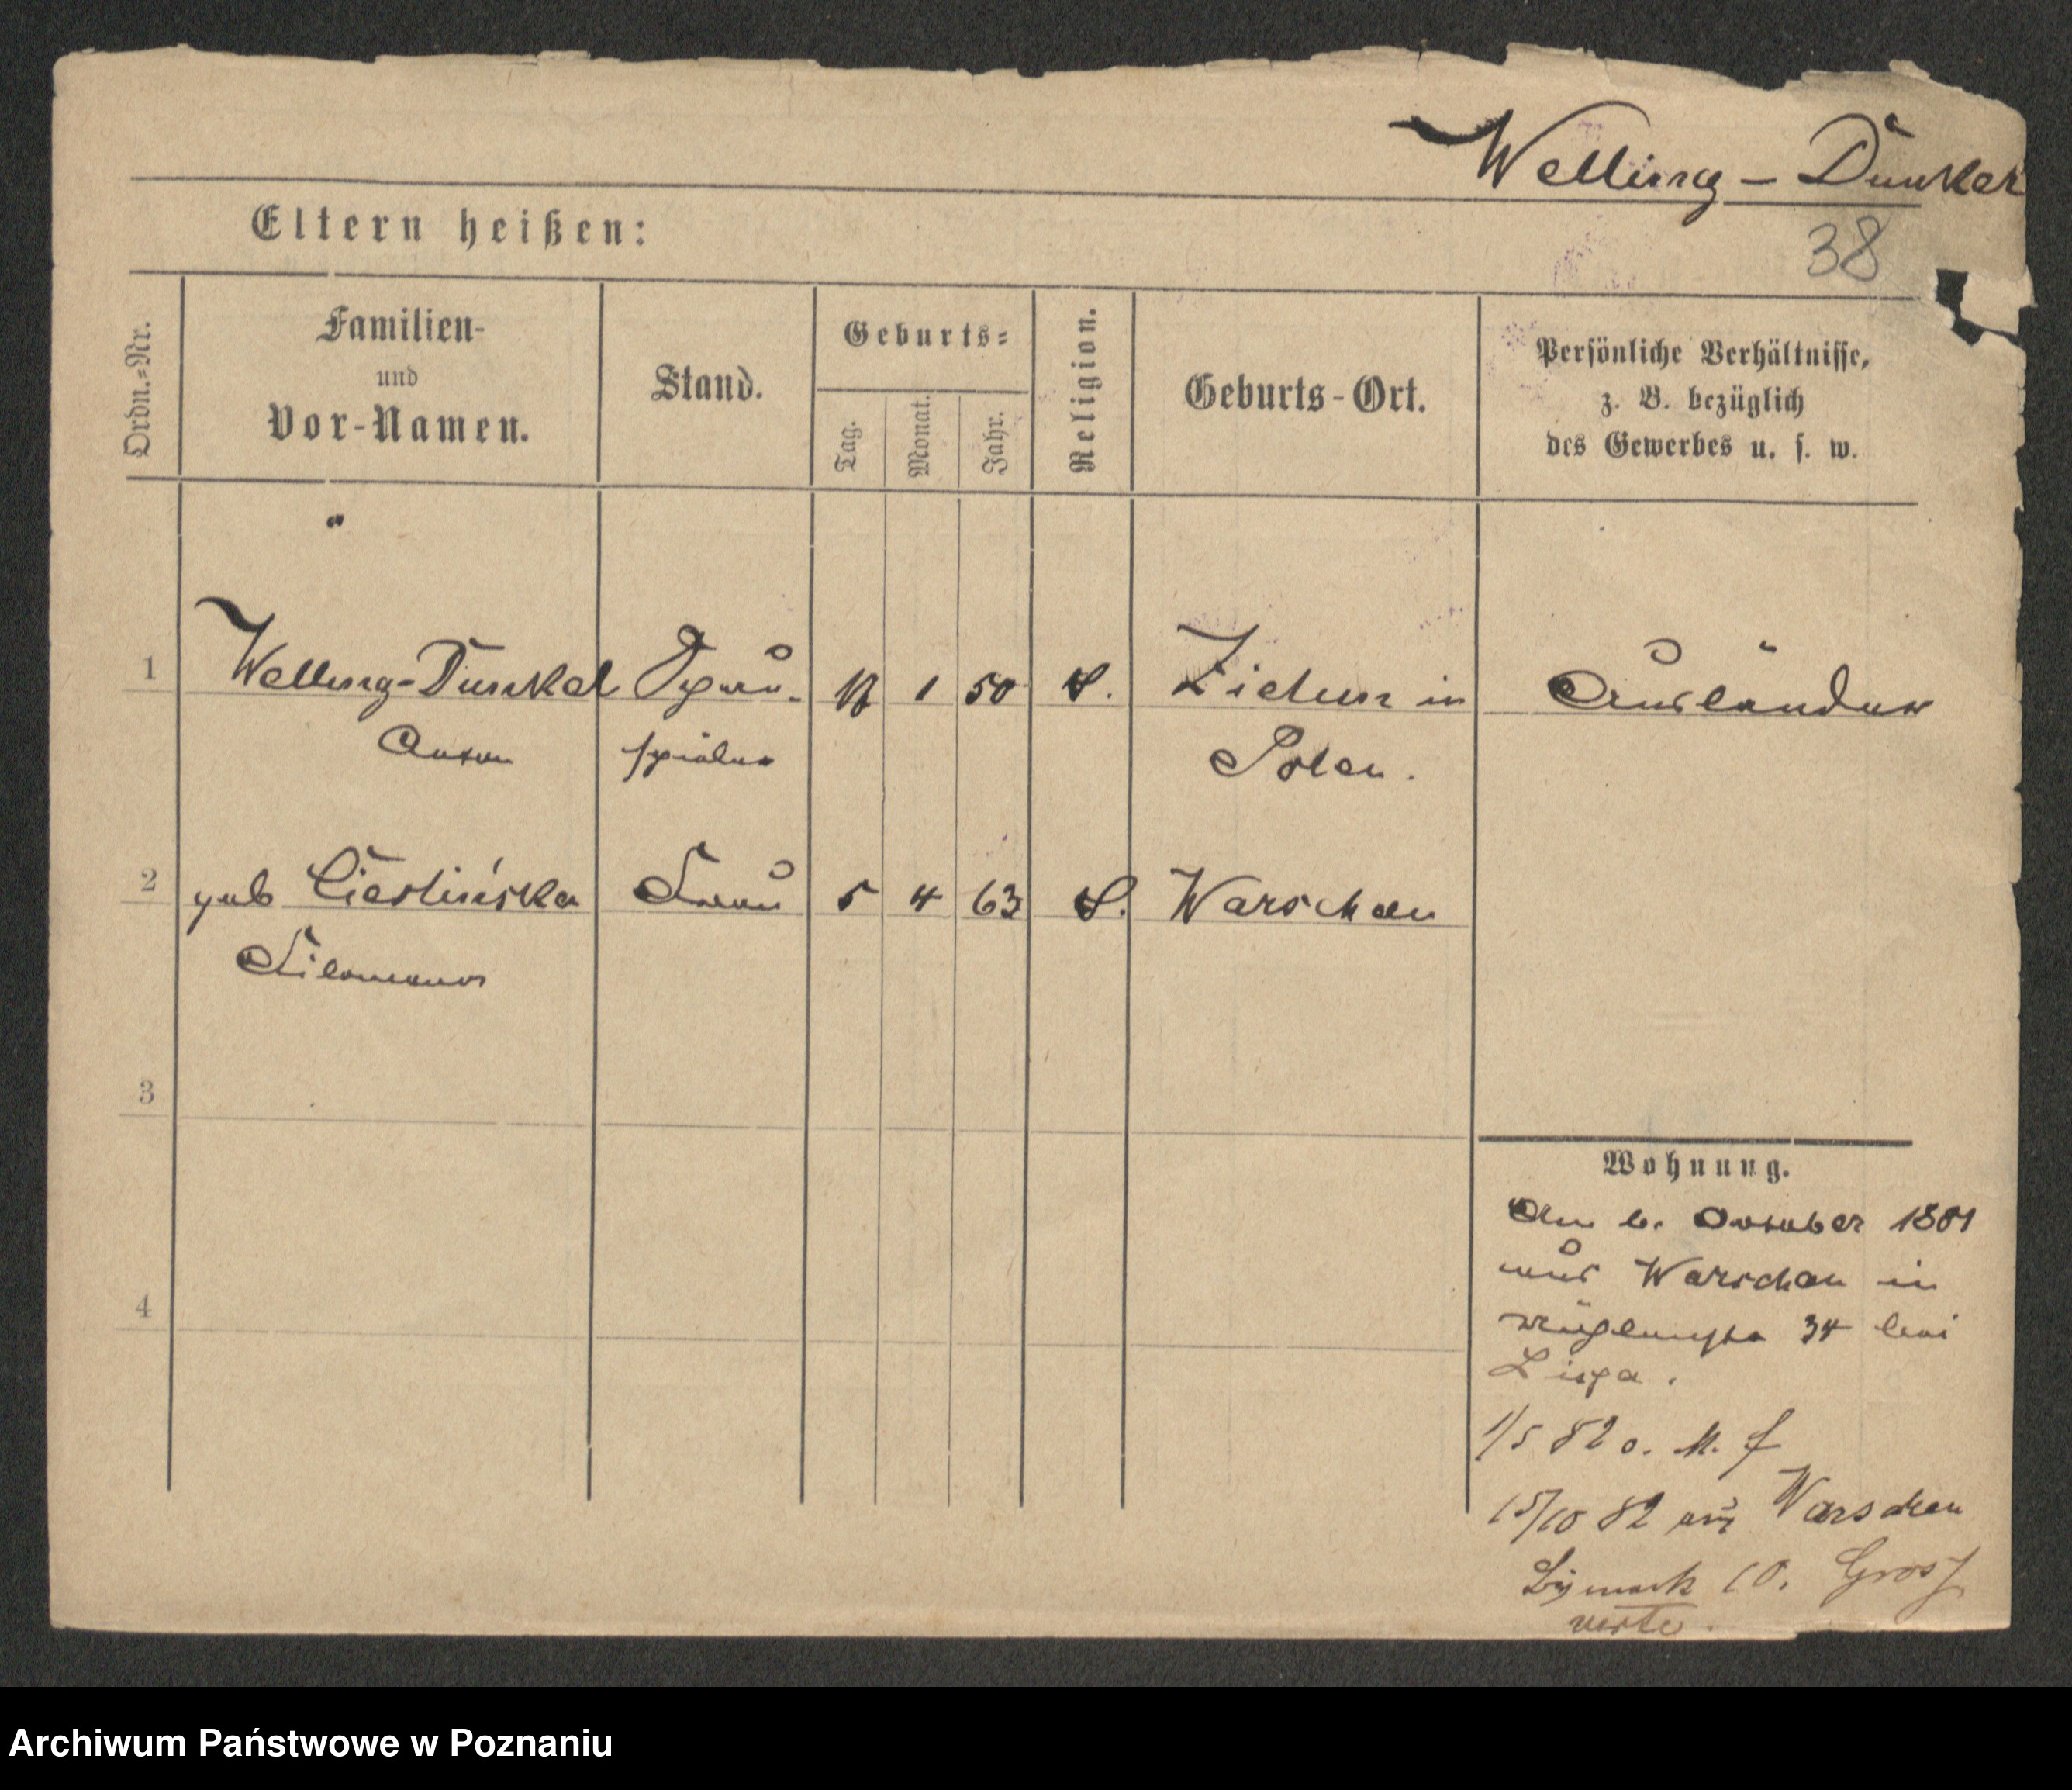 Welling – Dunkel
38
Eltern heißen:
Ordn.=Nr.
Familien-
und
Vor-Namen.
Stand.
Geburts=
Tag.
Monat.
Jahr.
Religion.
Geburts-Ort.
Persönliche Verhältnisse,
z. B. bezüglich
des Gewerbes u. s. w.
1 Welling-Dunkel Schau- 1 50 Zichun in Ausländer
Anton spieler Polen.
2 geb Cieslińska Frau 5 4 63 Warschau
Filomena
3
4
Wohnung.
Am 6. October 1881
aus Warschau in
34 bei
Lispa.
1/5 82 o. M. f
15/10 82 aus Warschau
Bismark 10. Gros
verte.
Archiwum Państwowe w Poznaniu